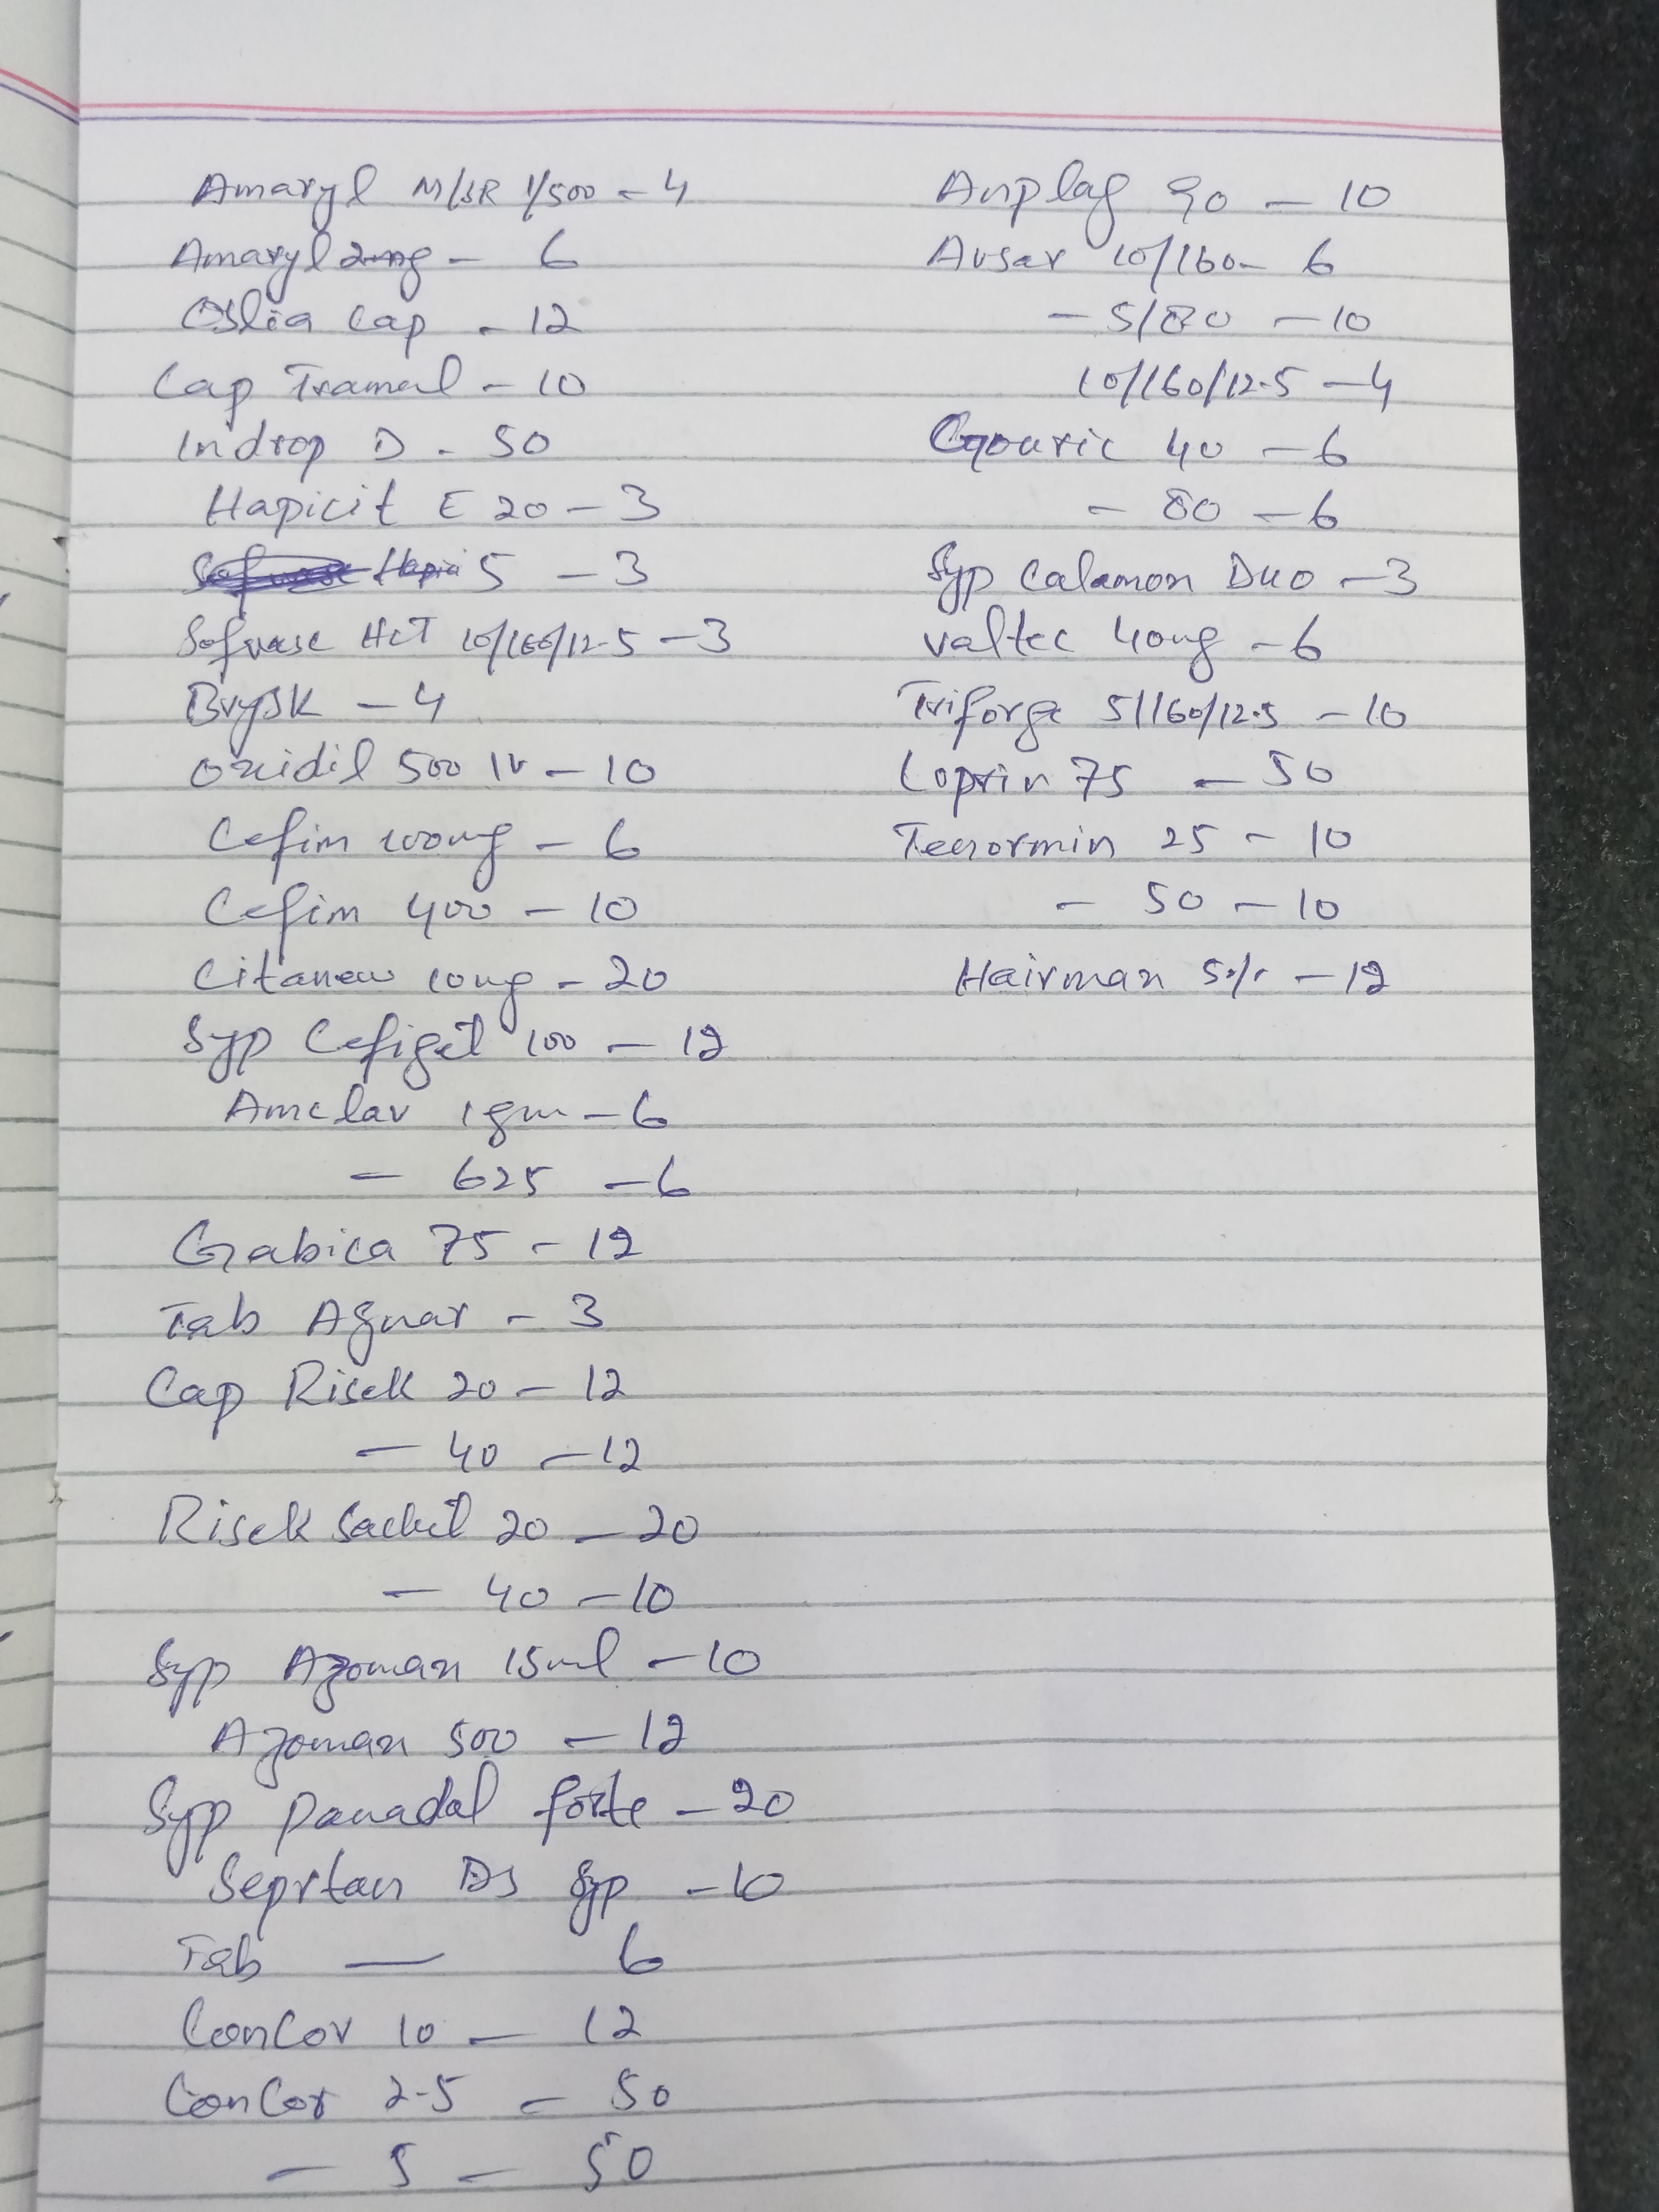 Amaryl M/SR 1/500 - 4
Amaryl 2mg - 6
Oslia Cap - 12
Cap Tramal - 10
Indrop D - 50
Hapicit E 20 - 3
5 - 3
Sofvase HCT 10/160/12.5 - 3
Brysk - 4
Oxidil 500 IV - 10
Cefim 100mg - 6
Cefim 400 - 10
Citanew 10mg - 20
Syp Cefiget 100 - 12
Amclav 1gm - 6
- 625 - 6
Gabica 75 - 12
Tab Agnar - 3
Cap Risek 20 - 12
- 40 - 12
Risek Sachet 20 - 20
- 40 - 10
Syp Azoman 15ml - 10
Azoman 500 - 12
Syp Panadol forte - 20
Seprtan DS Syp - 10
Tab — 6
ConCor 10 - 12
ConCor 2.5 - 50
- 5 - 50
Anplag 90 - 10
Avsar 10/160 - 6
- 5/80 - 10
10/160/12.5 - 4
Gouric 40 - 6
- 80 - 6
Syp Calamox Duo - 3
Valtec 40mg - 6
Triforge 5/160/12.5 - 10
Loprin 75 - 50
Tenormin 25 - 10
- 50 - 10
Hairman 5% - 12